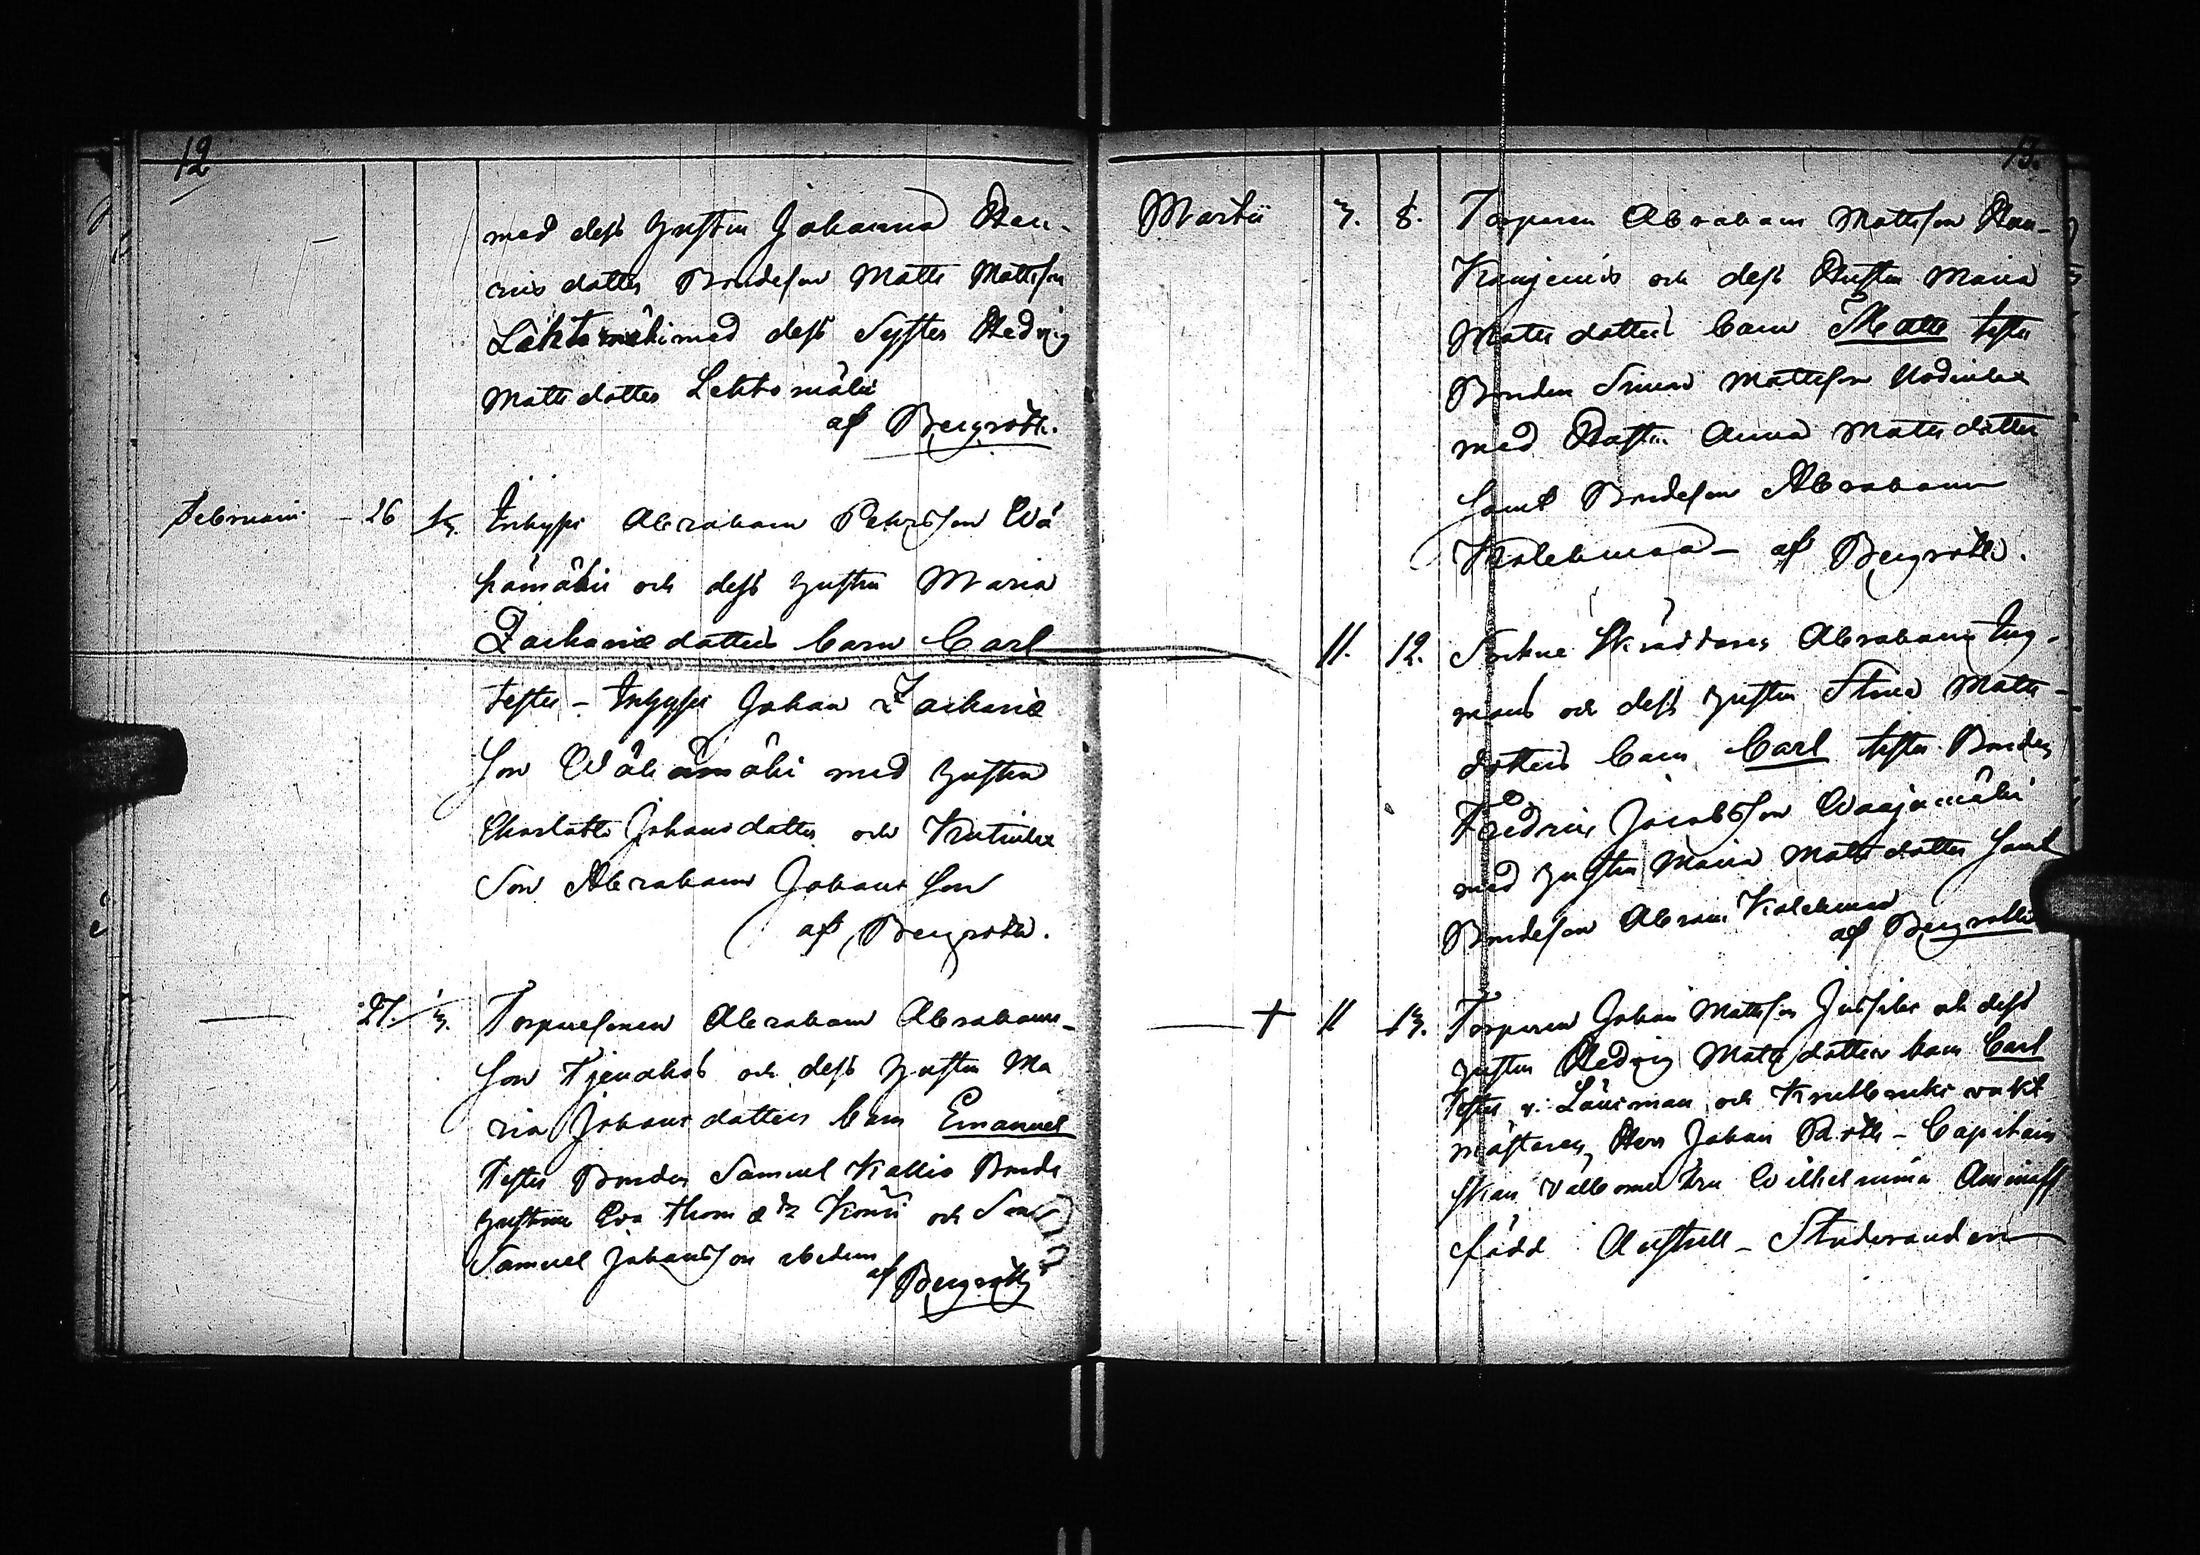 12
med dess hustru Johanna Hen-
ries dotter Bondeson Matts Mattsson
Lehtomäki med dess Syster Hedvig
Matts dotter Lehtomäki
af Bergroth.
Februari - 26 1/3. Inhyses Abraham Pehrsson Wä
hämäki och dess hustru Maria
Zachariæ dotters barn Carl
testes - Inhyses Johan Zachariæ
son Wähämäki med hustru
Charlotta Johans dotter och
Son Abraham Johans son
af Bergroth.
— 27. 1/3. Torparesonen Abraham Abrahams-
son och dess hustru Ma
ria Johans dotters barn Emanuel
Testes Bonden Samuel Kallio Bonde
hustrun Eva Thom æ dr och Son
Samuel Johansson ibidem
af Bergroth
13.
Martii 7. 8. Torparen Abraham Mattsson Han-
och dess Hustru Maria
Matts dotters barn Matts testes
Bonden Simon Mattsson
med Hustru Anna Matts dotter
samt Bondeson Abraham
Kolehmaa - af Bergroth.
11. 12. Sockne Skräddaren Abraham Eng-
mans och dess hustru Stina Matts-
dotters barn Carl testes Bonden
Fredric Jacobsson Waajamäki
med hustru Maria Matts dotter samt
Bondeson Abram Kolehmaa
af Bergroth
— + 11 13. Torparen Johan Mattsson och dess
hustru Hedvig Matts dotters barn Carl
Testes v. Länsman och Kronobruks vakt
mästaren Herr Johan Roth - Capitain
skan Välborne Fru Wilhelmina Aminoff
född - Studeranden